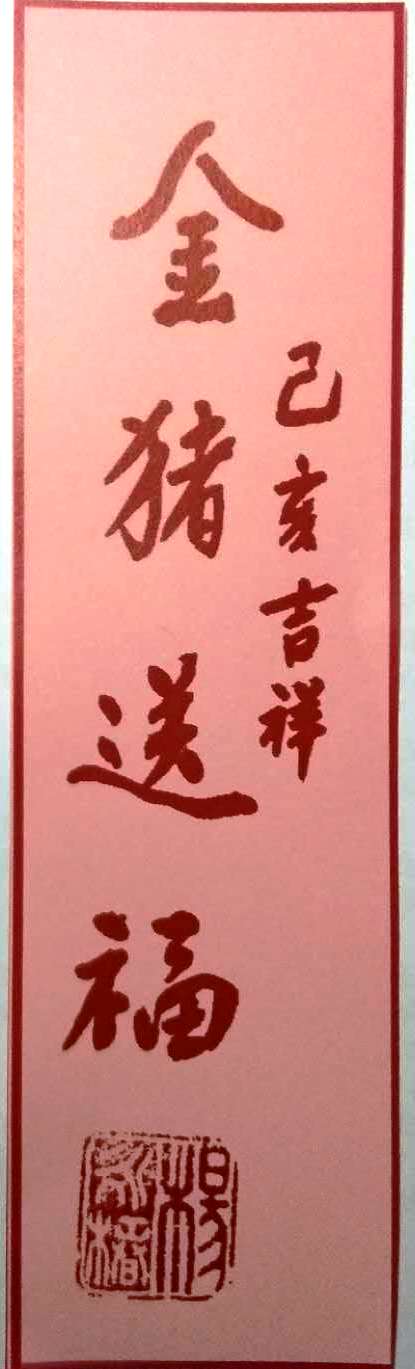 己亥吉祥
金猪送福